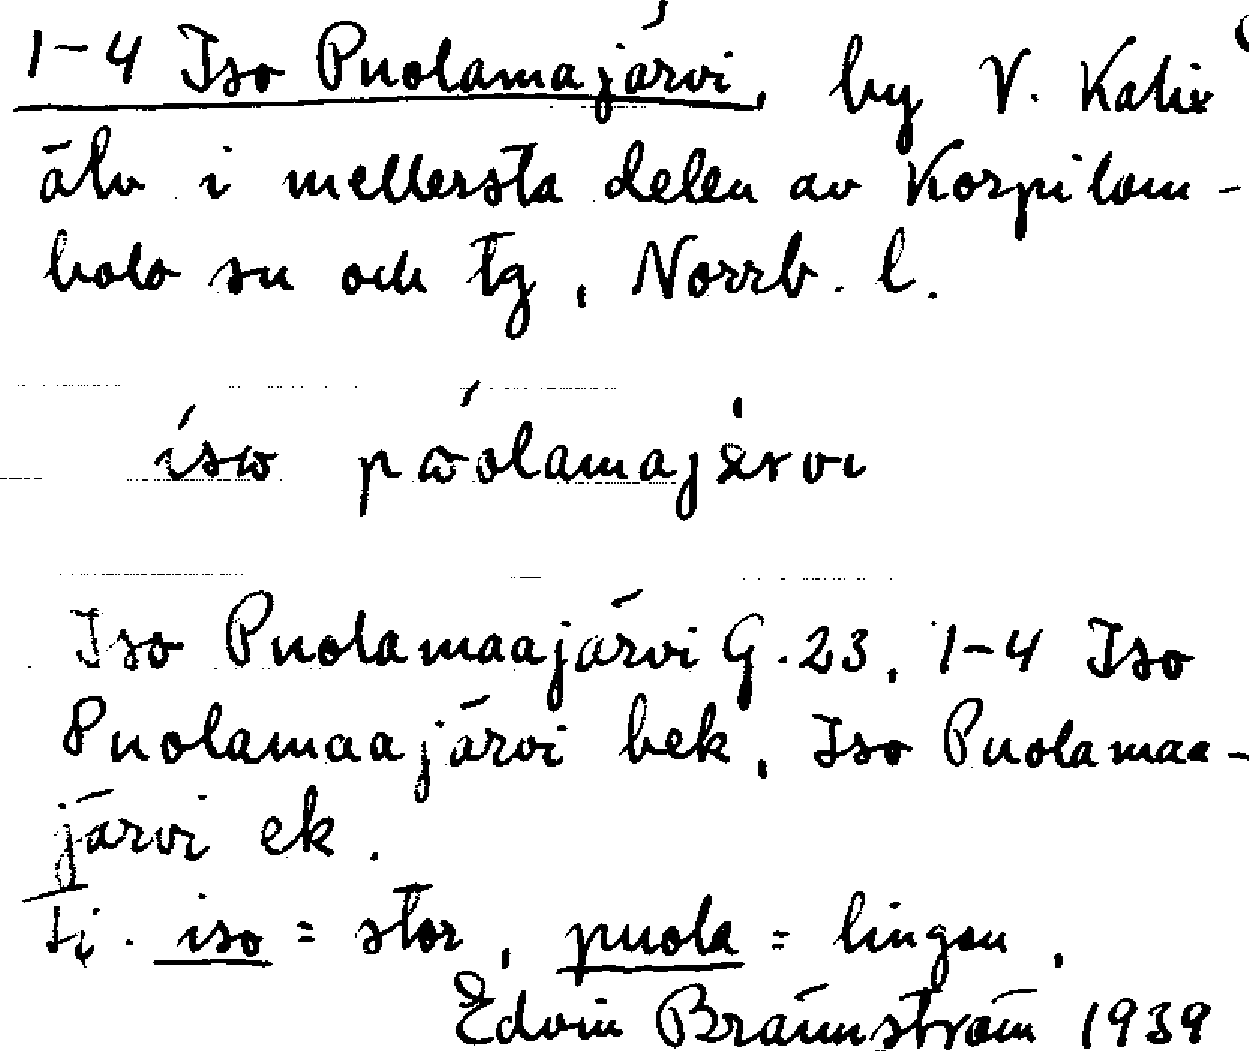 1-4 Iso Puolamajärvi, by V. Kalix
älv i mellersta delen av Korpilom-
bolo sn och tg, Norrb. l.
ísω pω̄́olamajärvi
Iso Puolamaajärvi G. 23, 1-4 Iso
Puolamaajärvi bek, Iso Puolamaa-
järvi ek.
fi. iso = stor, puola = lingon,
Edvin Brännström 1939